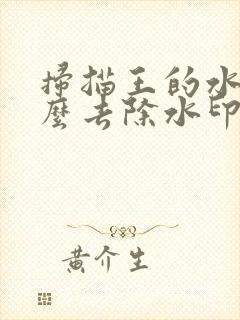 掃描王的水
麼去除水印
黃介生